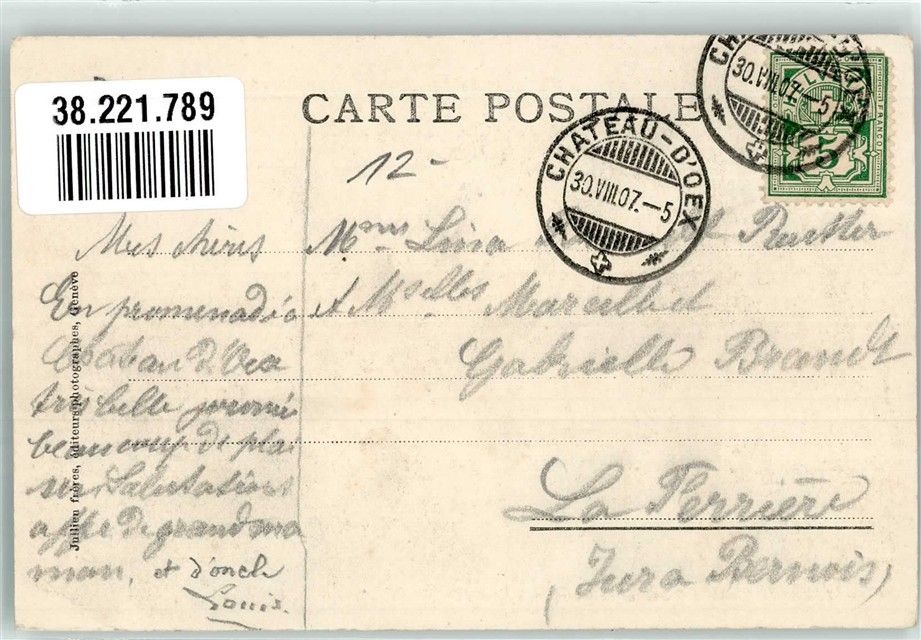 38.221.789
CARTE POSTALE
CHATEAU-D'OEX
30.VIII.07.-5
CH
30.VIII.07.-5
FRANCO
5
12-
Mes chéries
En promenade à
Chateau d'Oex
très belle journé
beaucoup de plai
sir Salutations
affe de grand ma
man, et d'oncle
Louis.
Mme Lina
et Mselles Marcelle et
Gabrielle Brandt
La Ferrière
(Jura Bernois)
Jullien frères, éditeurs-photographes, Genève